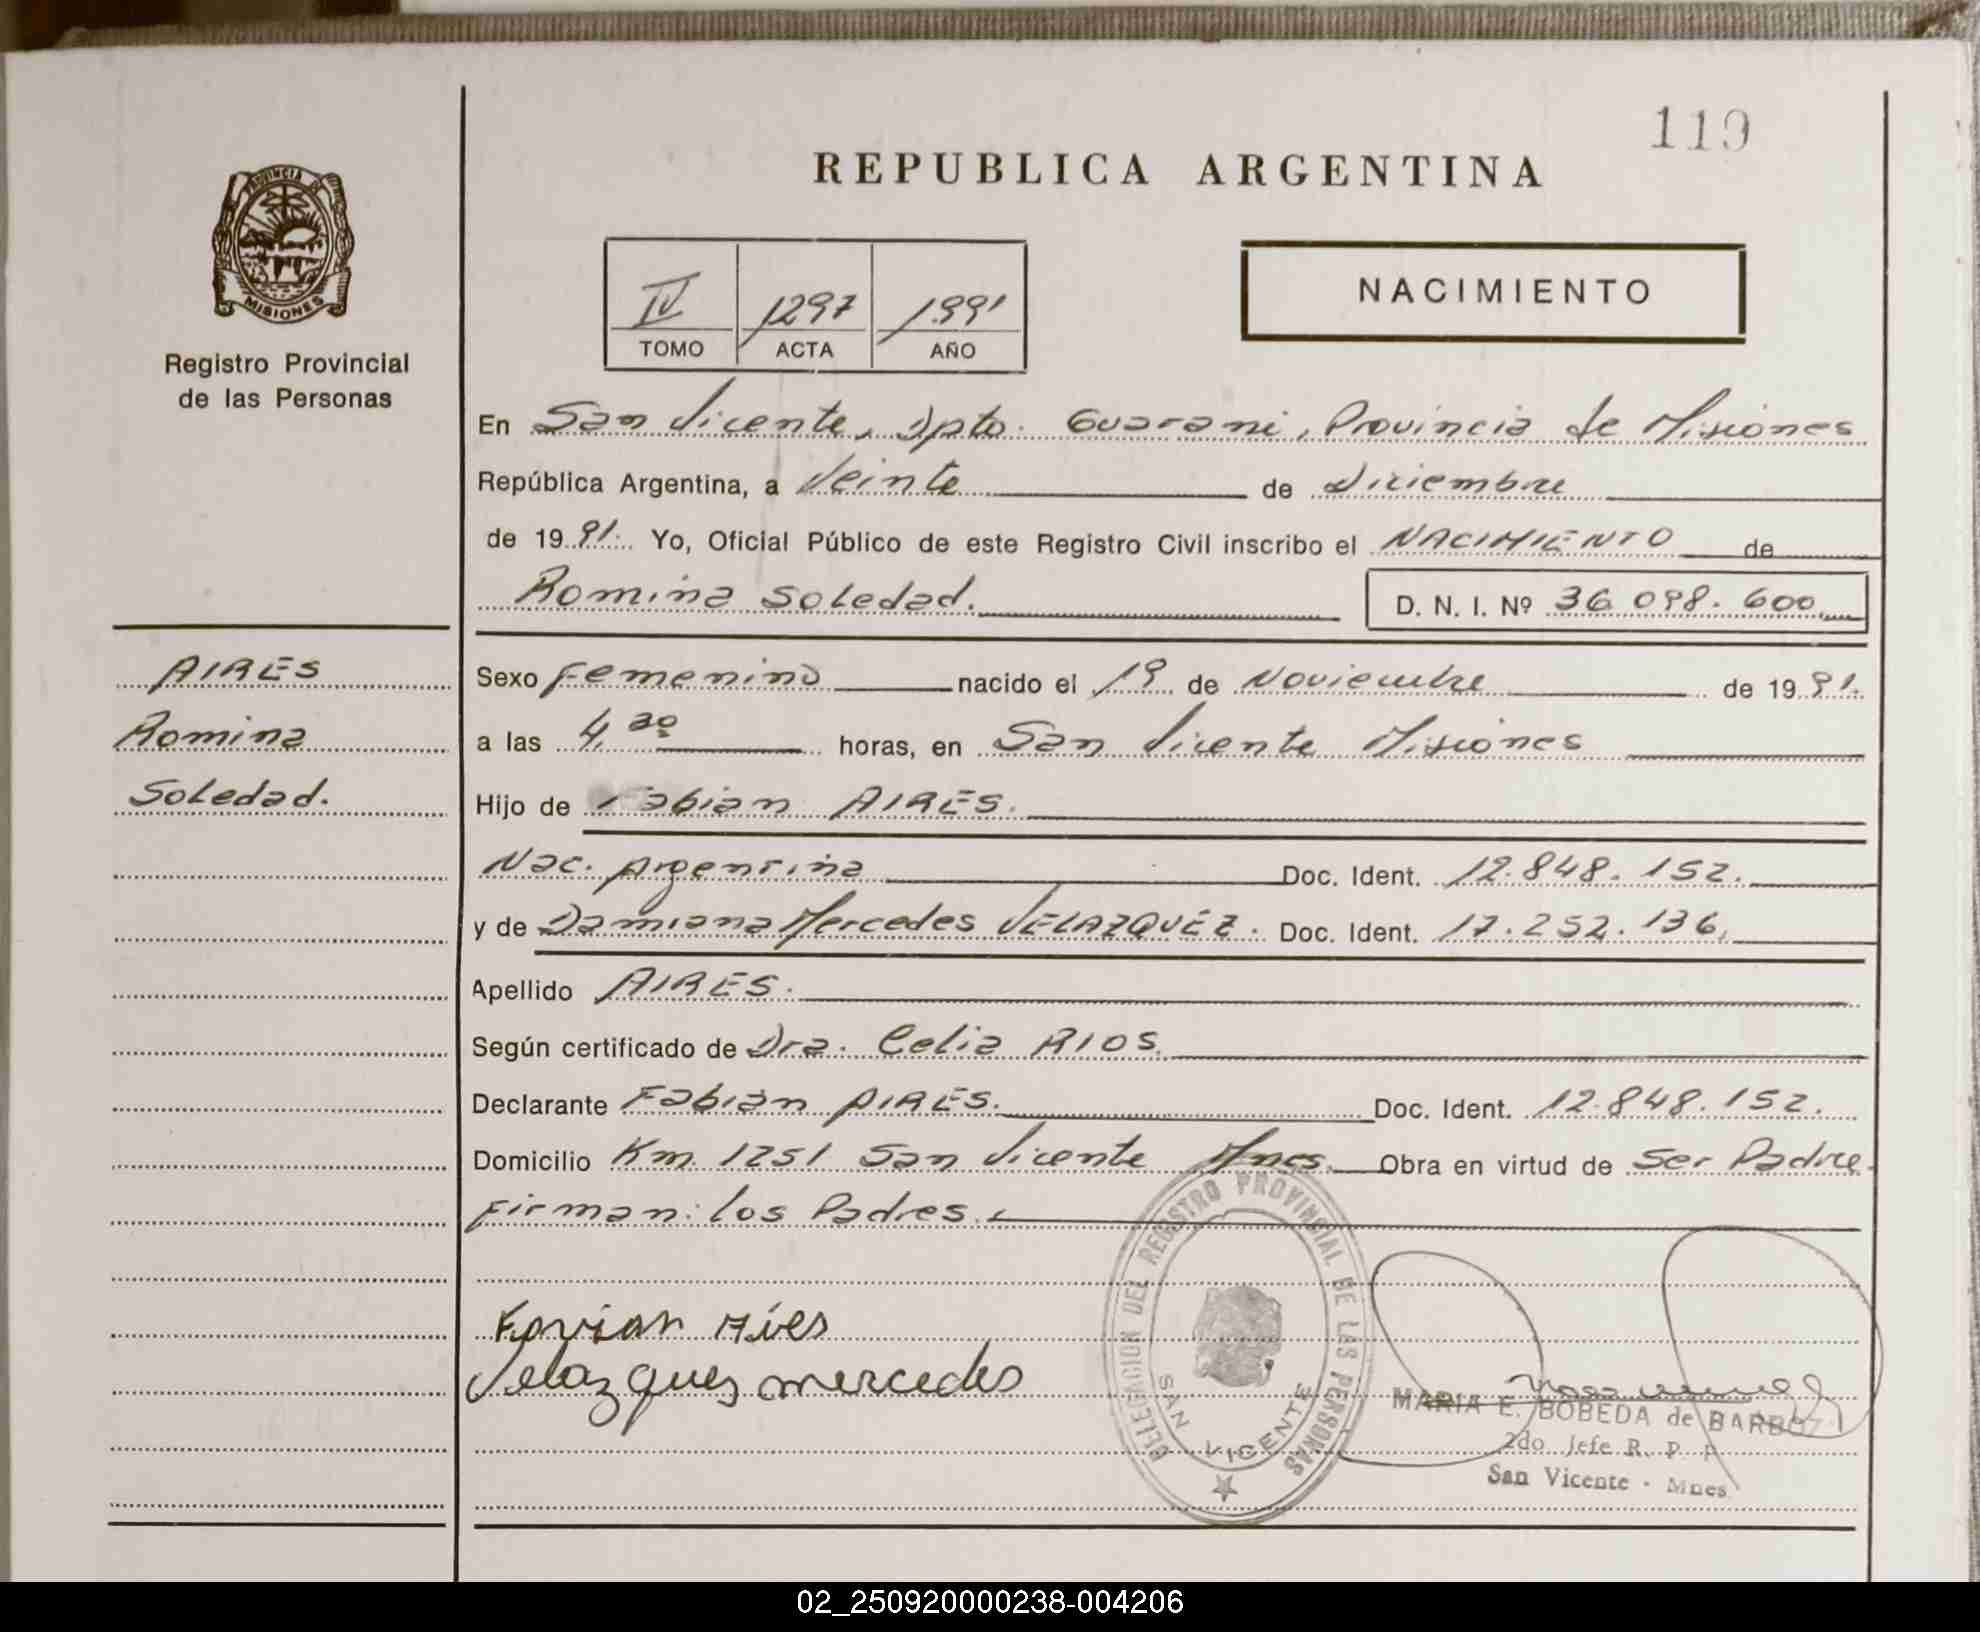 119
REPUBLICA ARGENTINA
PROVINCIA DE
MISIONES
Registro Provincial
de las Personas
IV 1297 1991
TOMO ACTA AÑO
NACIMIENTO
En San Vicente, Dpto. Guarani, Provincia de Misiones
República Argentina, a Veinte de Diciembre
de 1991. Yo, Oficial Público de este Registro Civil inscribo el NACIMIENTO de
Romina Soledad. D. N. I. Nº 36.098.600
AIRES
Romina
Soledad.
Sexo Femenino nacido el 19 de Noviembre de 1991.
a las 4,30 horas, en San Vicente Misiones
Hijo de Fabian AIRES.
Nac. Argentina Doc. Ident. 12.848.152.
y de Damiana Mercedes VELAZQUEZ. Doc. Ident. 17.252.136.
Apellido AIRES.
Según certificado de Dra. Celia RIOS.
Declarante Fabián AIRES. Doc. Ident. 12.848.152.
Domicilio Km. 1251 San Vicente Mnes. Obra en virtud de Ser Padre.
Firman: los Padres.
Favian Aires
Velazques mercedes
DELEGACION DEL REGISTRO PROVINCIAL DE LAS PERSONAS
SAN VICENTE
MARIA E. BOBEDA de BARBO
2do Jefe R. P. P.
San Vicente - Mnes.
02_250920000238-004206